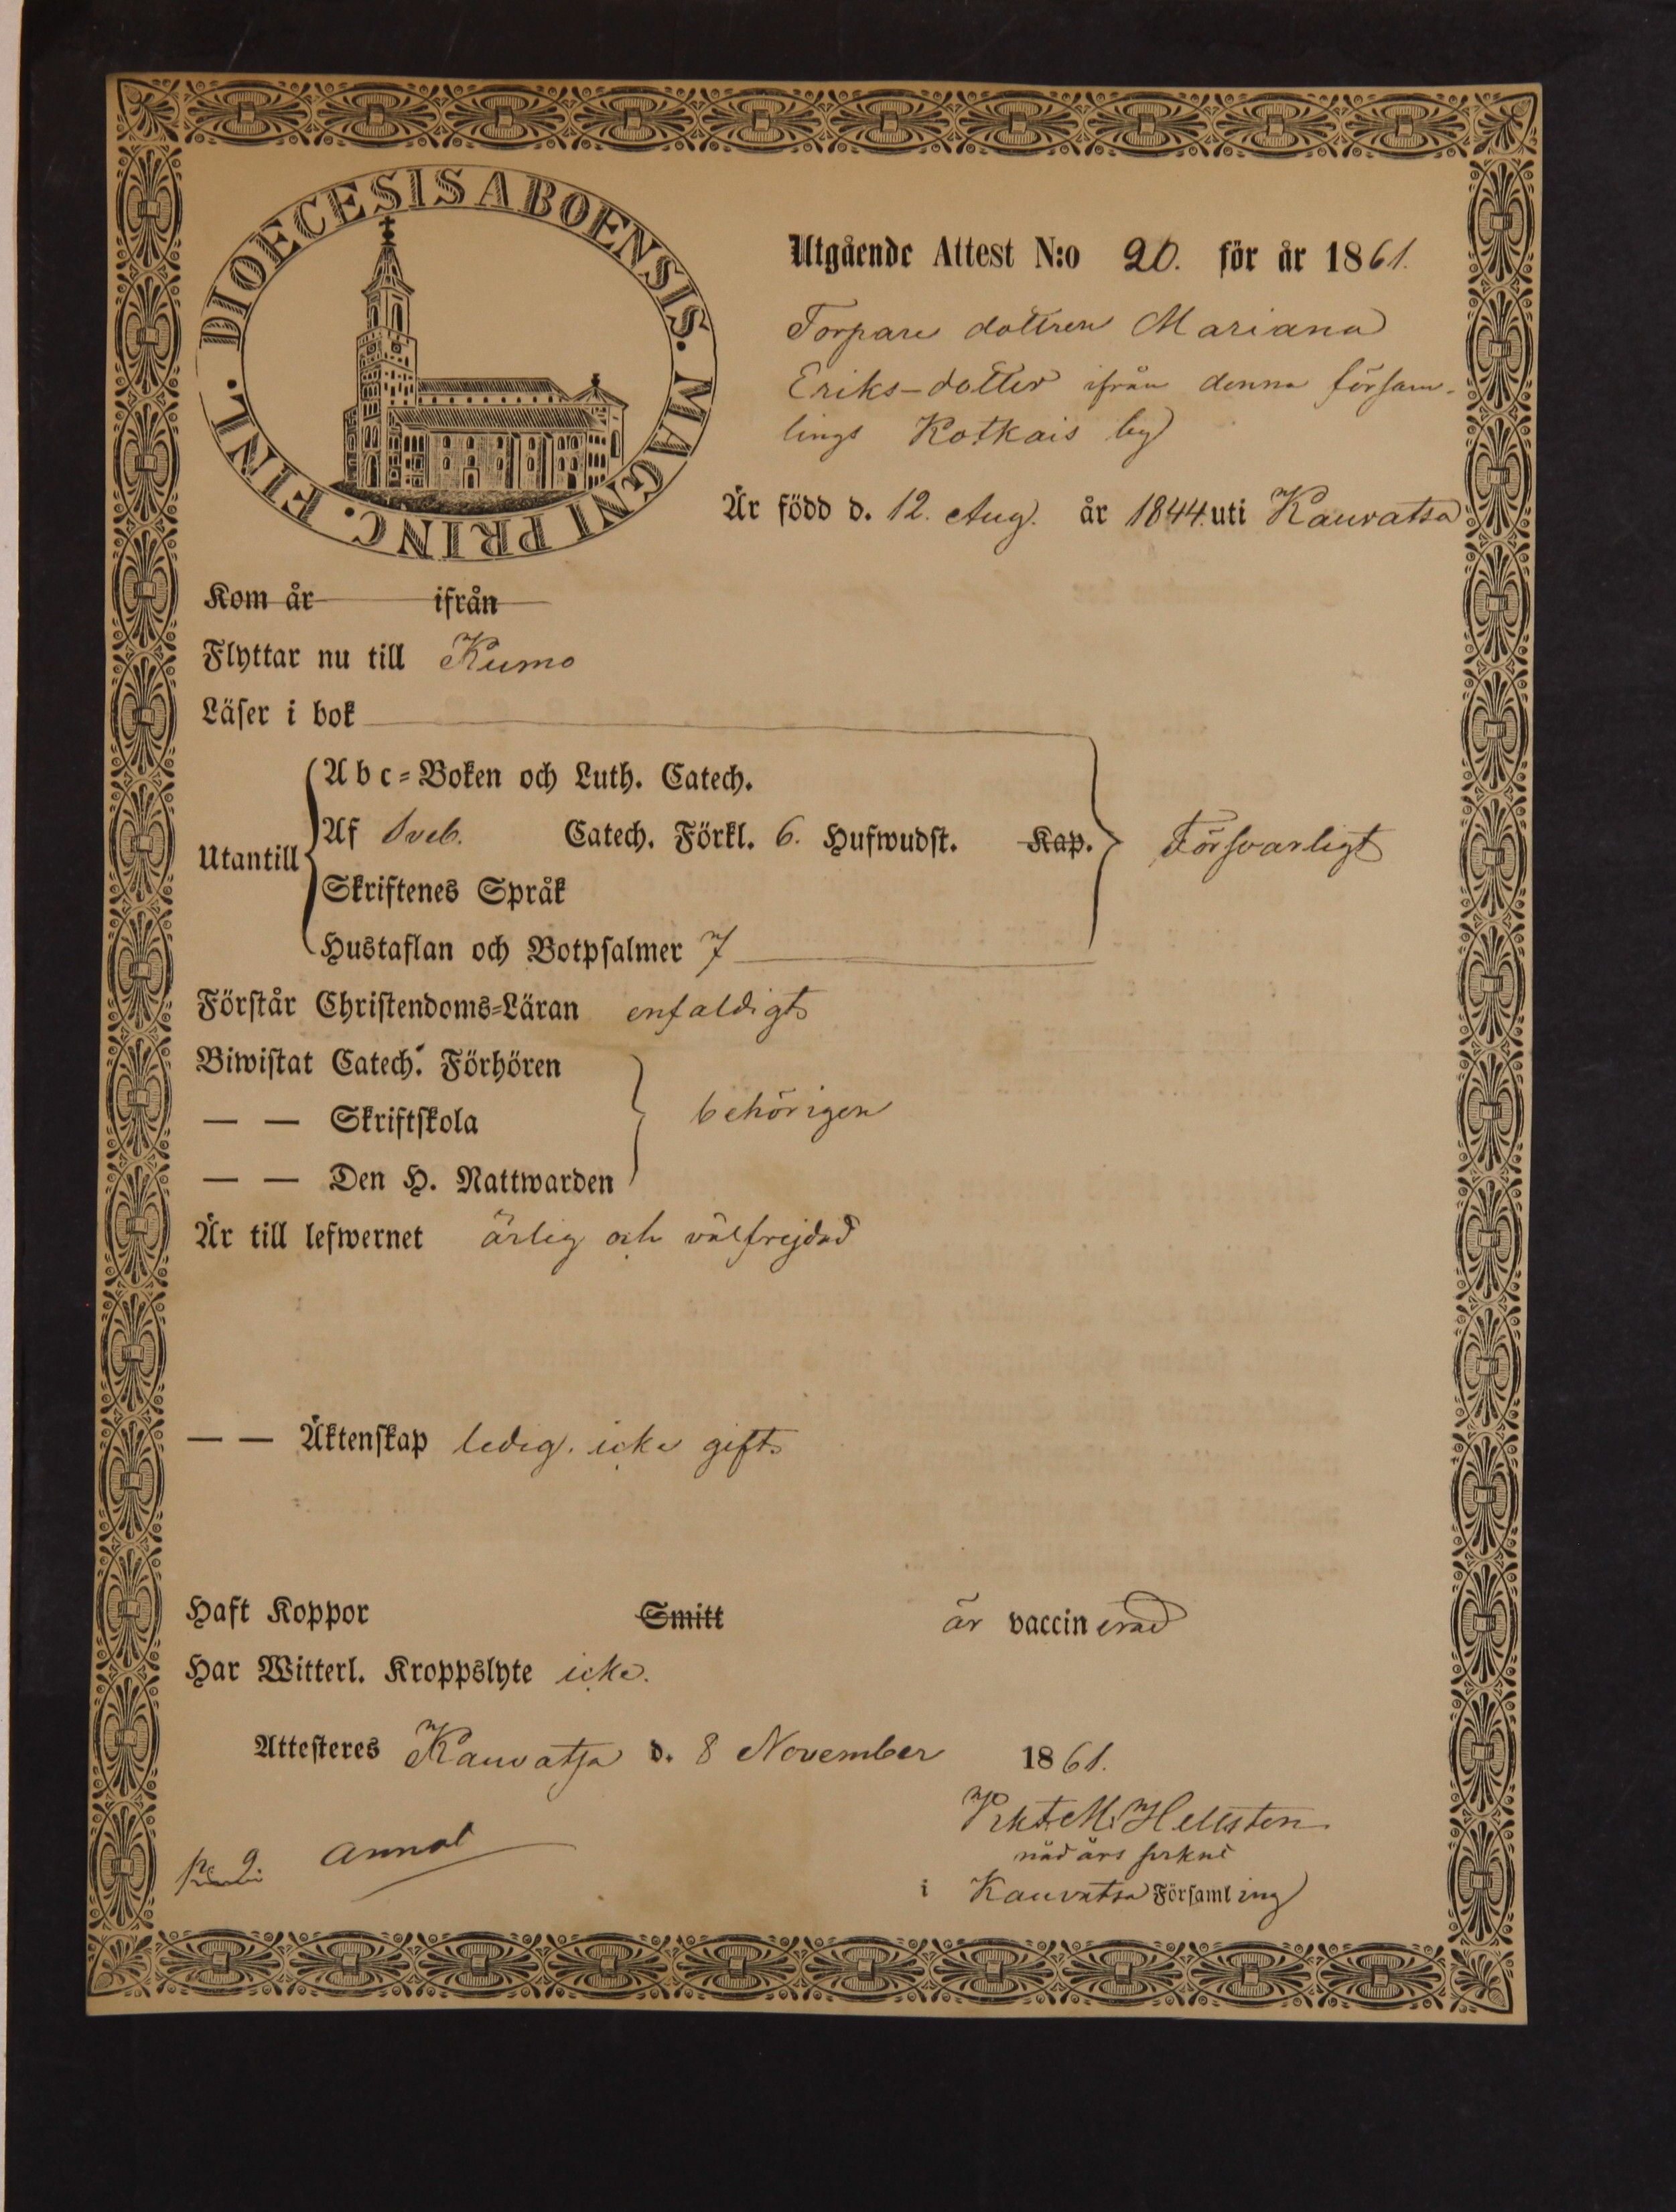 DIOECESIS ABOENSIS. MAGNI PRINC. FINL.
Utgående Attest N:o 20. för år 1861.
Torpare dottren Mariana
Eriks-dotter ifrån denna försam-
lings Kotkais by
Är född d. 12. Aug. år 1844. uti Kauvatsa
Kom år ifrån
Flyttar nu till Kumo
Läser i bok
Abc=Boken och Luth. Catech.
Utantill Af Sveb. Catech. Förkl. 6. Hufwudst. Kap. Försvarligt
Skriftenes Språk
Hustaflan och Botpsalmer 7
Förstår Christendoms=Läran enfaldigt
Biwistat Catech. Förhören
— — Skriftskola behörigen
— — Den H. Nattwarden
Är till lefwernet ärlig och välfrejdad
— — Äktenskap ledig. icke gift.
Haft Koppor Smitt är vaccinerad
Har Witterl. Kroppslyte icke.
Attesteres Kauvatsa d. 8 November 1861.
M. Hellsten
nådårs
i Kauvatsa Församling